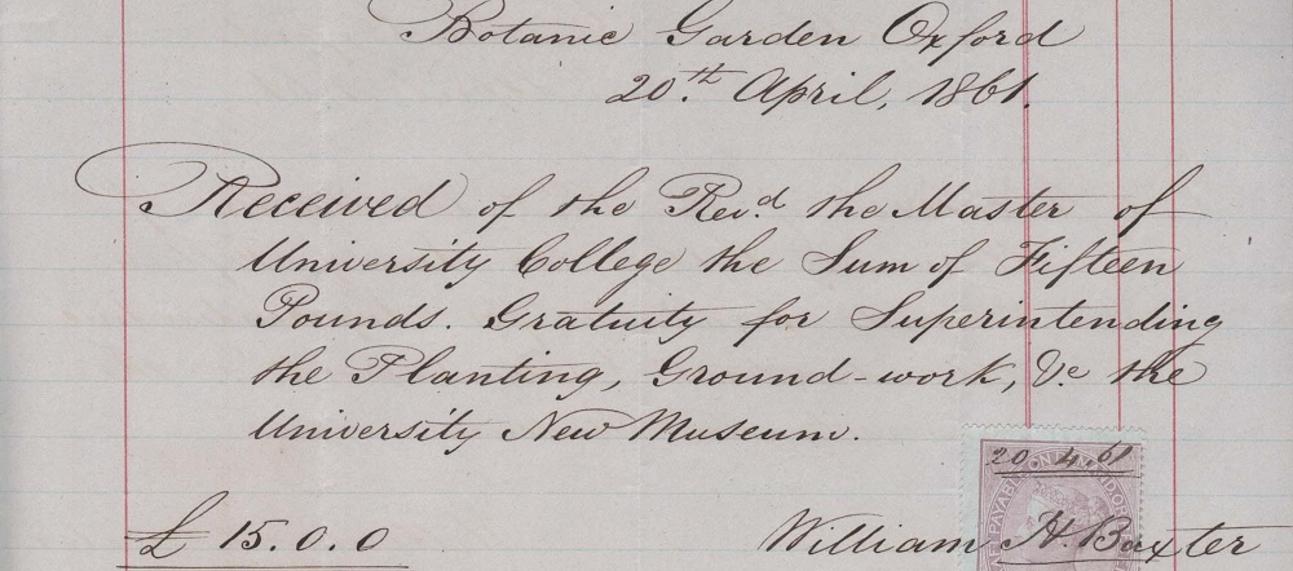 Botanic Garden Oxford
20.th April, 1861.
Received of the Rev.d the Master of
University College the Sum of Fifteen
Pounds. Gratuity for Superintending
the Planting, Ground-work, &c the
University New Museum.
20 4.61
PAYABLE ON DEMAND OR
£ 15.0.0
William H. Baxter